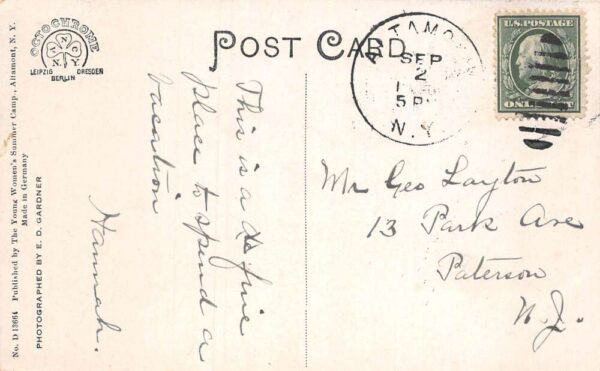 OCTOCHROME
A N C
N.Y.
LEIPZIG DRESDEN
BERLIN
POST CARD
SEP
2
5P
N.Y.
U.S. POSTAGE
No. D 13664 Published by The Young Women's Summer Camp., Altamont, N. Y.
Made in Germany
PHOTOGRAPHED BY E. D. GARDNER
This is a fine
place to spend a
vacation
Hannah.
Mr Geo Layton
13 Park Ave
Paterson
N.J.